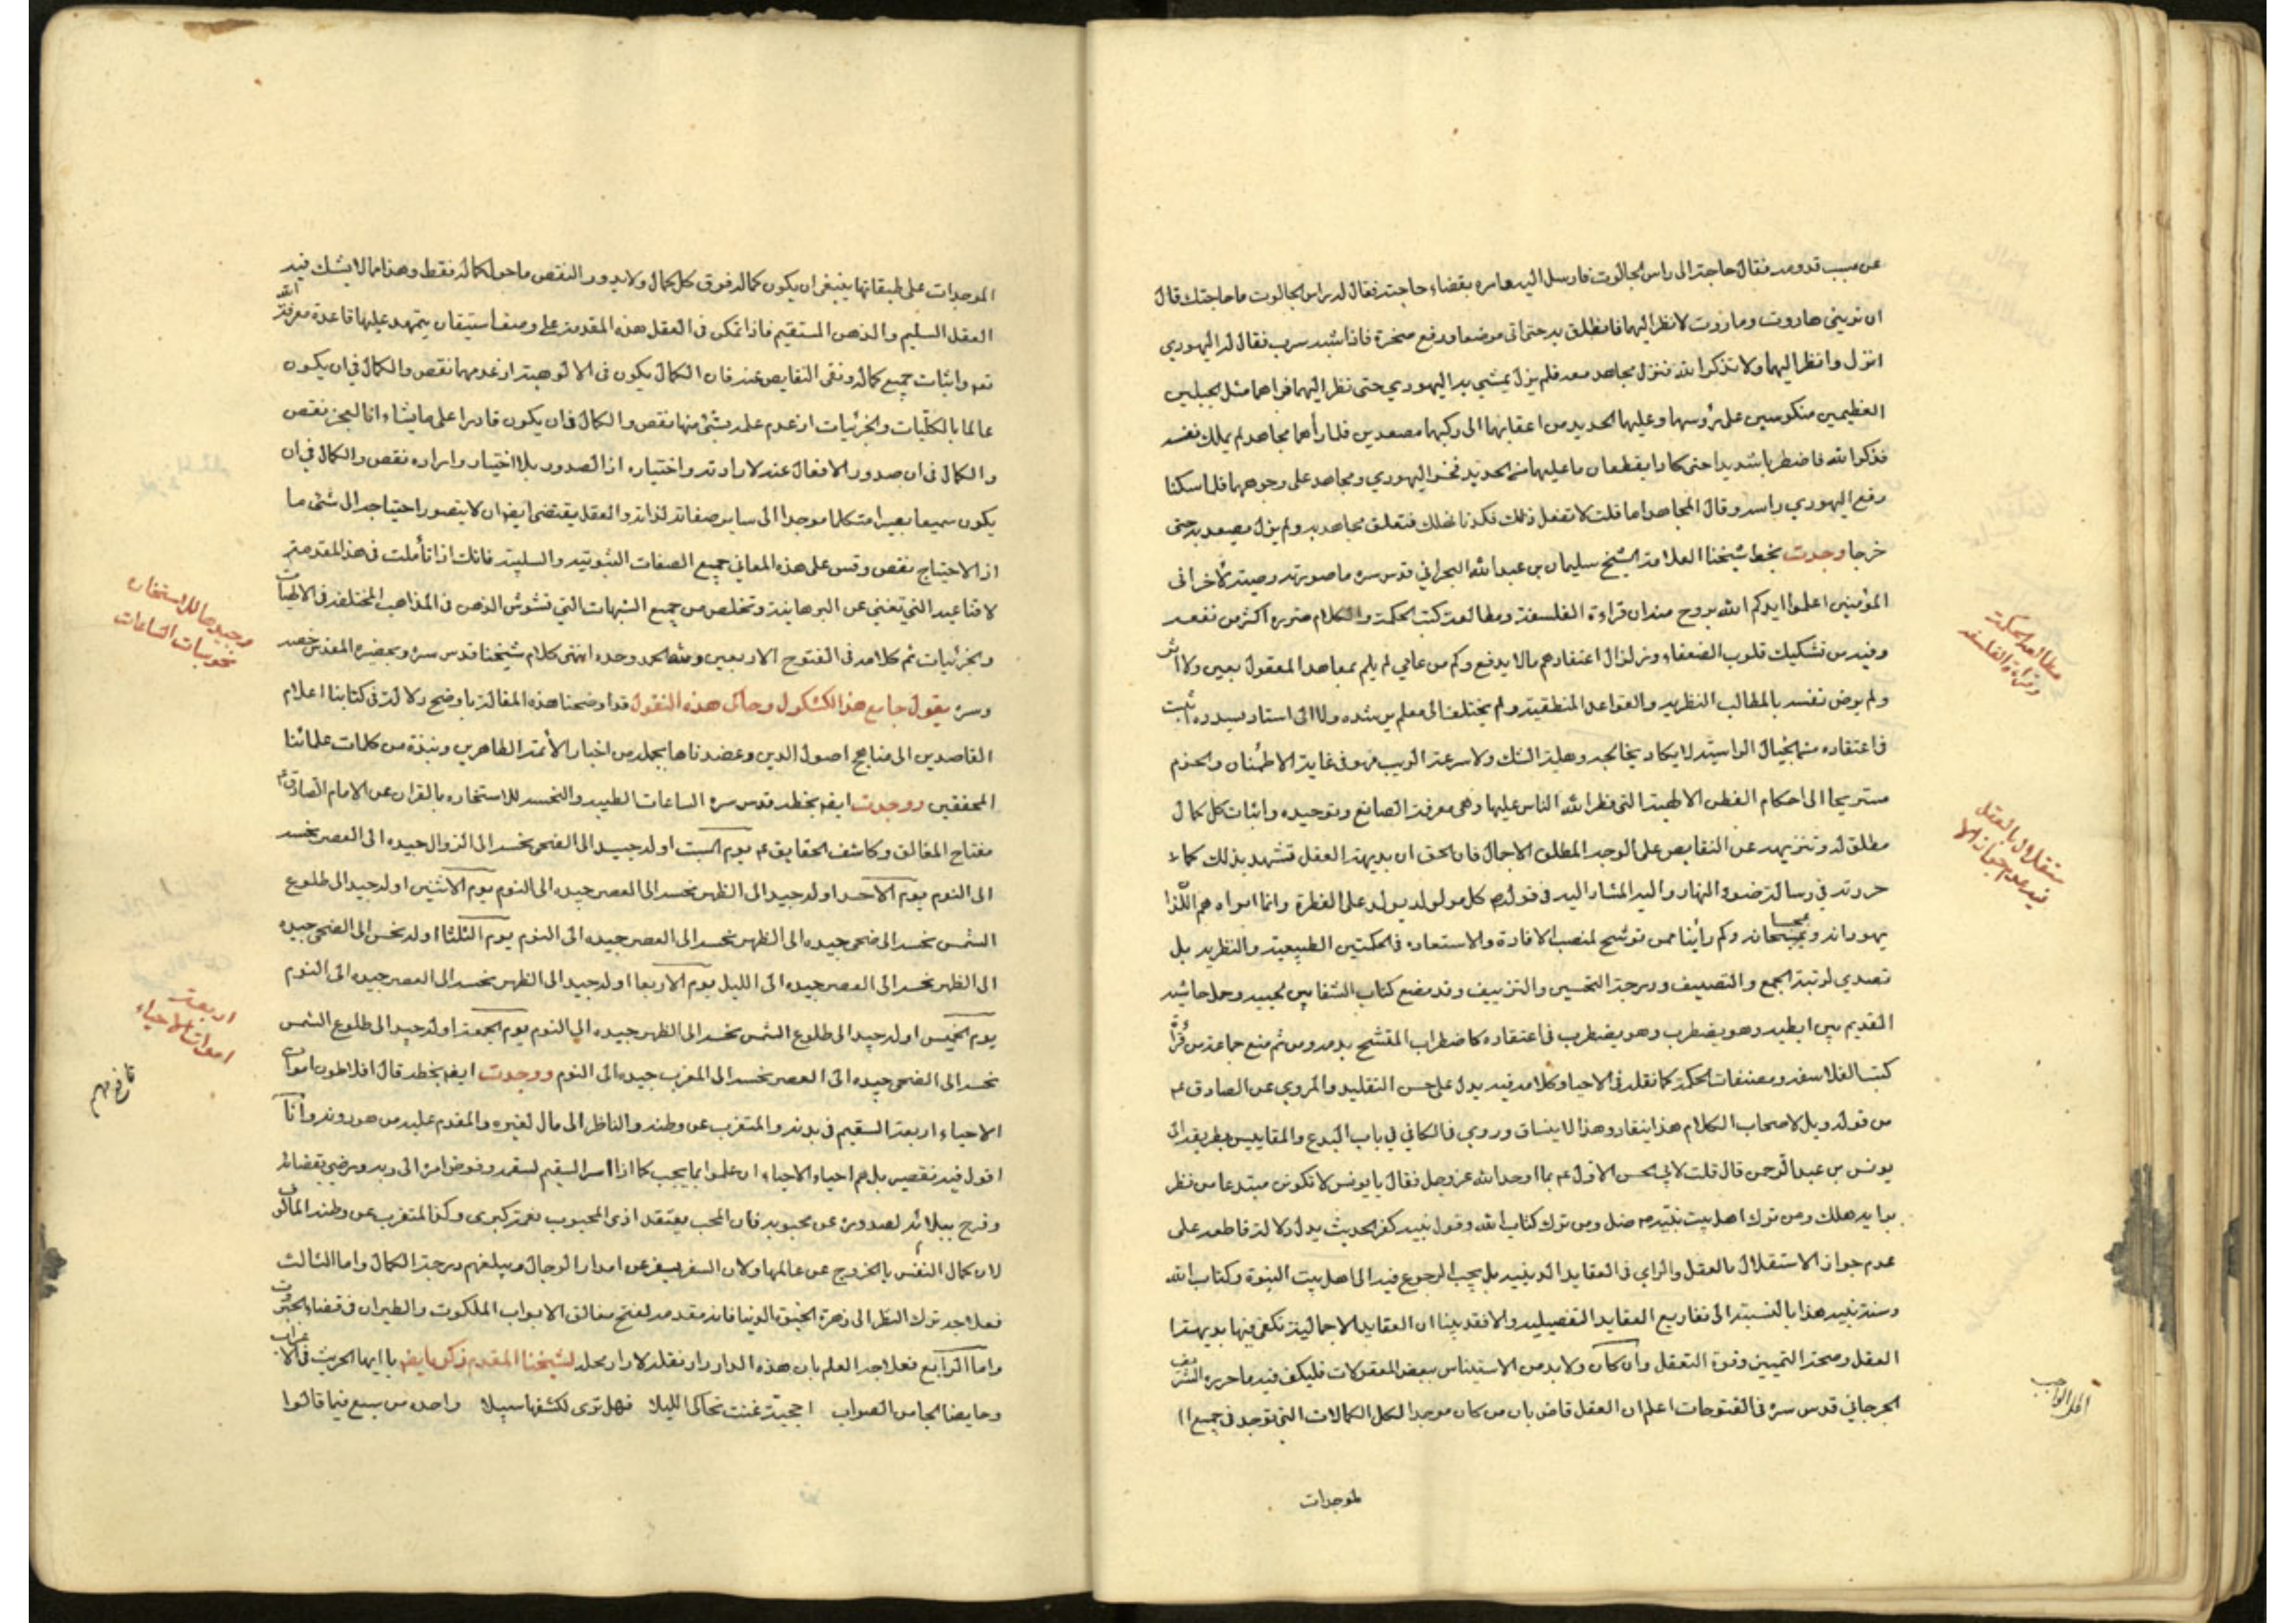 عن سبب قدومه فقال حاجة الى راس الجالوت فارسل اليه وامره بقضاء حاجته فقال له راس الجالوت ما حاجتك قال
ان تريني هاروت وماروت لانظر اليهما فانطلق به حتى اتى موضعا ورفع صخرة فاذا شبه سرب فقال له اليهودي
انزل وانظر اليهما ولا تذكر الله فنزل مجاهد معه فلم يزل يمشي به اليهودي حتى نظر اليهما فراهما مثل الجبلين
العظيمين منكوسين على رؤسهما وعليهما الحديد من اعقابهما الى ركبهما مصفدين فلما رأهما مجاهد لم يملك نفسه
فذكر الله فاضطربا شديدا حتى كادا يقطعان ما عليهما من الحديد فخر اليهودي ومجاهد على وجوههما فلما سكنا
رفع اليهودي راسه وقال لمجاهد اما قلت لا تفعل ذلك فكدنا نهلك فتعلق مجاهد به ولم يزل يصعد به حتى
خرجا وجدت بخط شيخنا العلامة الشيخ سليمان بن عبد الله البحراني قدس سره ما صورته وصية لاخواني
المؤمنين اعلموا ايدكم الله بروح منه ان قراءة الفلسفة ومطالعة كتب الحكمة والكلام ضرره اكثر من نفعه
وفيه من تشكيك قلوب الضعفاء وتزلزال اعتقادهم ما لا يدفع وكم من عامي لم يلم بمعاهد المعقول بعين ولا اثر
ولم يرض نفسه بالمطالب النظرية والقواعد المنطقية ولم يختلف الى معلم يرشده ولا الى استاد يسدده ثبت
في اعتقاده مثل الجبال الراسية لا يكاد يخالجه وهلة الشك ولا سرعة الريب فهو في غاية الاطمئنان والجزم
مستريحا الى احكام الفطن الالهية التي فطر الله الناس عليها وهي معرفة الصانع وتوحيده واثبات كل كمال
مطلق له وتنزيهه عن النقايص على الوجه المطلق الاجمال فان الحق ان بديهة العقل تشهد بذلك كما
حررته في رسالة ضوء النهار واليه المشار اليه في قوله ص كل مولود يولد على الفطرة وانما ابواه هم اللذا
يهودانه ويمجسانه وكم رأينا ممن توشح لمنصب الافادة والاستعاده في الحكمتين الطبيعية والنظرية بل
تصدي لرتبة الجمع والتصنيف ودرجة التحسين والتزييف وقد مضع كتاب الشفا بين لحييه وحل حاشية
القديم بين ابطيه وهو يضطرب وهو يضطرب في اعتقاده كاضطراب المتشحط بدمه ومن ثم منع جماعة من قراءة
كتب الفلاسفة ومصنفات الحكمة كما نقله في الاحيا وكلامه فيه يدل على حسن التقليد والمروي عن الصادق ع
من قوله ويل لاصحاب الكلام هذا ينقاد وهذا لا ينساق وروي في الكافي في باب البدع والمقاييس بطريقه الى
يونس بن عبد الرحمن قال قلت لابي الحسن الاول ع بما اوحد الله عز وجل فقال يا يونس لا تكونن مبتدعا من نظر
برايه هلك ومن ترك اهل بيت نبيه ص ضل ومن ترك كتاب الله وقول نبيه كفر الحديث يدل دلالة قاطعة على
عدم جواز الاستقلال بالعقل والراي في العقايد الدينيه بل يجب الرجوع فيه الى اهل بيت النبوة وكتاب الله
وسنة نبيه هذا بالنسبة الى تفاريع العقايد التفصيليه والا فقد بينا ان العقايد الاجمالية تكفي فيها بديهة
العقل وصحة التمييز وقوة التعقل وان كان ولا بد من الاستيناس ببعض المعقولات فليكف فيه ما حرره الشريف
الجرجاني قدس سره في الفتوحات اعلم ان العقل قاض بان من كان موجدا لكل الكمالات التي توجد في جميع ا
لموجدات
مطالعة الحكمة
وقراءة الفلسفه
فيه عدم جواز الا
ستقلال بالعقل
الموجدات على طبقاتها ينبغي ان يكون كماله فوق كل كمال ولا يدور النقص ما حول كماله فقط وهذا ما لا يشك فيه
العقل السليم والذهن المستقيم فاذا تمكن في العقل هذه المقدمة على وصف استيقان يتمهد عليها قاعدة معرفة الله
تعه واثبات جميع كماله ونفى النقايص عنه فان الكمال يكون في الالوهية اذ عدمها نقص والكمال في ان يكون
عالما بالكليات والجزئيات اذ عدم علمه بشئ منها نقص والكمال في ان يكون قادرا على ما يشاء اذ العجز نقص
والكمال في ان صدور الافعال عنه لارادته واختياره اذ الصدور بلا اختيار واراده نقص والكمال في ان
يكون سميعا بصيرا متكلما موجدا الى ساير صفاته لذاته والعقل يقتضى ايضا ان لا يتصور احتياجه الى شئ ما
اذ الاحتياج نقص وقس على هذه المعاني جميع الصفات الثبوتيه والسلبية فانك اذا تأملت في هذه المقدمة
لاقناعية التي تغني عن البرهانية وتخلص من جميع الشبهات التي تشوش الذهن في المذاهب المختلفة في الالهيات
والجزئيات ثم كلامه في الفتوح الاربعين ولله الحمد وحده انتهى كلام شيخنا قدس سره
وسره يقول جامع هذا الكشكول وحاكى هذه النقول قد اوضحنا هذه المقالة باوضح دلالة في كتابنا اعلام
القاصدين الى مناهج اصول الدين وعضدناها بجملة من اخبار الأئمة الطاهرين ونبذة من كلمات علمائنا
المحققين ووجدت ايضا بخطه قدس سره الساعات الطيبه والنحسه للاستخاره بالقران عن الامام الصادق ع
مفتاح المغالق وكاشف الحقايق ع يوم السبت اوله جيد الى الضحى نحسه الى الزوال جيده الى العصر نحسه
الى النوم يوم الاحد اوله جيد الى الظهر نحسه الى العصر جيده الى النوم يوم الاثنين اوله جيد الى طلوع
الشمس نحسه الى ضحى جيده الى الظهر نحسه الى العصر جيده الى النوم يوم الثلثا اوله نحس الى الضحى جيده
الى الظهر نحسه الى العصر جيده الى الليل يوم الاربعا اوله جيد الى الظهر نحسه الى العصر جيده الى النوم
يوم الخميس اوله جيد الى طلوع الشمس نحسه الى الظهر جيده الى النوم يوم الجمعة اوله جيد الى طلوع الشمس
نحسه الى الضحى جيده الى العصر نحسه الى المغرب جيده الى النوم ووجدت ايضا بخطه قال افلاطون اموات
الاحياء اربعة السقيم في بدنه والمتغرب عن وطنه والناظر الى مال لغيره والمقدم عليه من هو دونه وانا
اقول فيه تقصير بل هم احياء الاحياء ان علموا بما يجب كما اذا اسر السقيم لسقمه وفوض امره الى ربه ورضي بقضائه
وفرح ببلائه لصدوره عن محبوبه فان المحب يعتقد اذى المحبوب نعمة كبرى وكذا المتغرب عن وطنه المالوف
لان كمال النفس بالخروج عن عالمها ولان السفر يسفر عن اسرار الرجال ويبلغهم درجة الكمال واما الثالث
فعلاجه ترك النظر الى زهرة الحيوة الدنيا فانه مقدمة لفتح مغالق الابواب الملكوت والطيران في فضاء الجبروت
واما الرابع فعلاجه العلم بان هذه الدار دار نقلة لا دار محلة لشيخنا المقدم ذكره ايضا يا ايها الحريث في الاعراب
وخايضا لجا من الصواب احجية غنت تحاكى الليلا فهل ترى لكشفها سبيلا واحده من سبع فيما قالوا
وجيدها للاستخاره
نحوسات الساعات
اربعة
اموات الاحياء